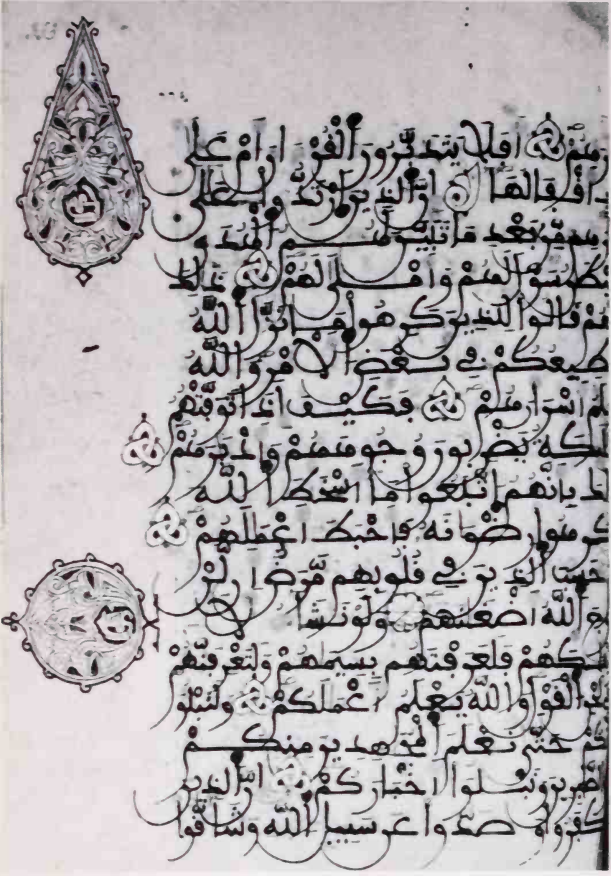 أفلا يتدبرون القرءان أم على
أقفالها إن الذين ارتدوا على
من بعد ما تبين لهم الهدى
سول لهم وأملى لهم ذلك
قالوا للذين كرهوا ما نزل الله
طيعكم في بعض الأمر والله
لم أسرارهم فكيف إذا توفتهم
لئكة يضربون وجوههم وأدبرهم
لك بأنهم اتبعوا ما أسخط الله
كرهوا رضوانه فأحبط أعملهم
حسب الذين في قلوبهم مرض أن لن
ج الله أضغنهم ولو نشاء
نكهم فلعرفتهم بسيمهم ولتعرفنهم
حن القول والله يعلم أعملكم ولنبلو
نكم حتى نعلم المجهدين منكم
الصبرين ونبلوا أخباركم إن الذين
كفروا وصدوا عن سبيل الله وشاقوا